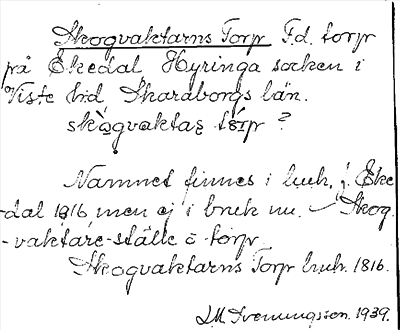 Skogvaktarns Torp F.d. torp
på Ekedal, Hyringa socken i
Viste hd, Skaraborgs län.
skògvaktaṣ tórp ?
Namnet finnes i husk. f. Eke
-dal 1816 men ej i bruk nu. Skog
-vaktare-ställe o torp
Skogvaktarns Torp husk. 1816.
L.M. Svenungsson. 1939.